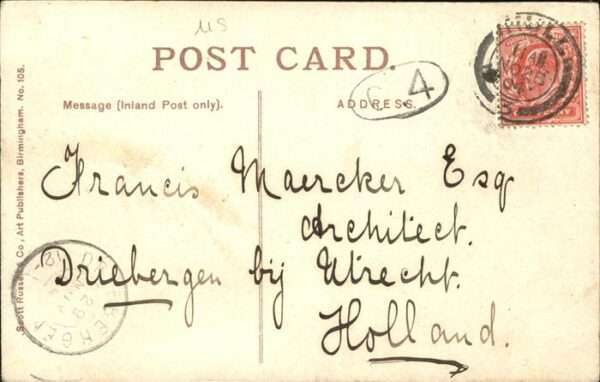 MS
POST CARD.
4
Message (Inland Post only).
ADDRESS.
Francis Maercker Esq
Architect.
Driebergen bij Utrecht.
Holland.
Scott Russell & Co., Art Publishers, Birmingham. No. 105.